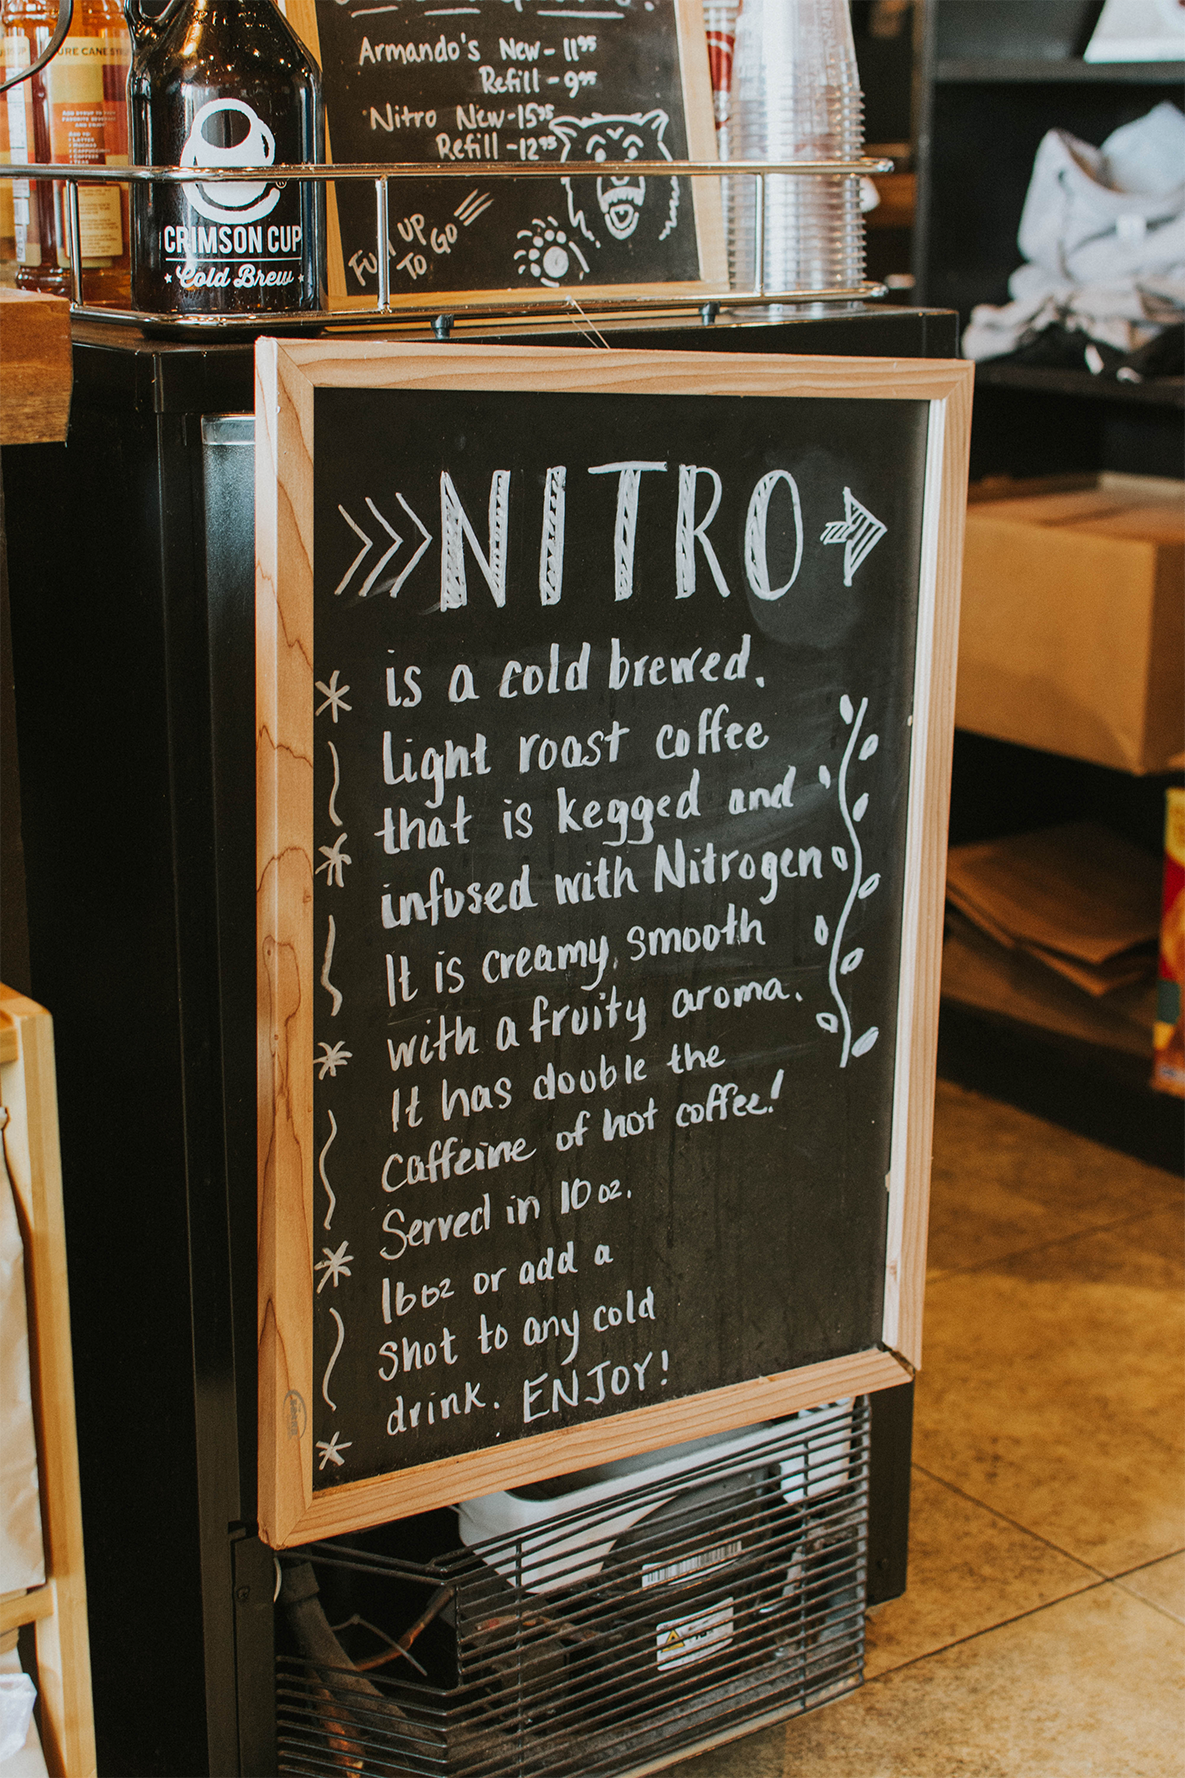 Armando's New - 11⁹⁵
Refill - 9⁹⁵
Nitro New - 15⁹⁵
Refill - 12⁹⁵
UP
TO GO
URE CANE SY
CRIMSON CUP
Cold Brew
NITRO
is a cold brewed.
Light roast coffee
that is kegged and
infused with Nitrogen
It is creamy, smooth
with a fruity aroma.
It has double the
caffeine of hot coffee!
Served in 10 oz.
16oz or add a
shot to any cold
drink. ENJOY!